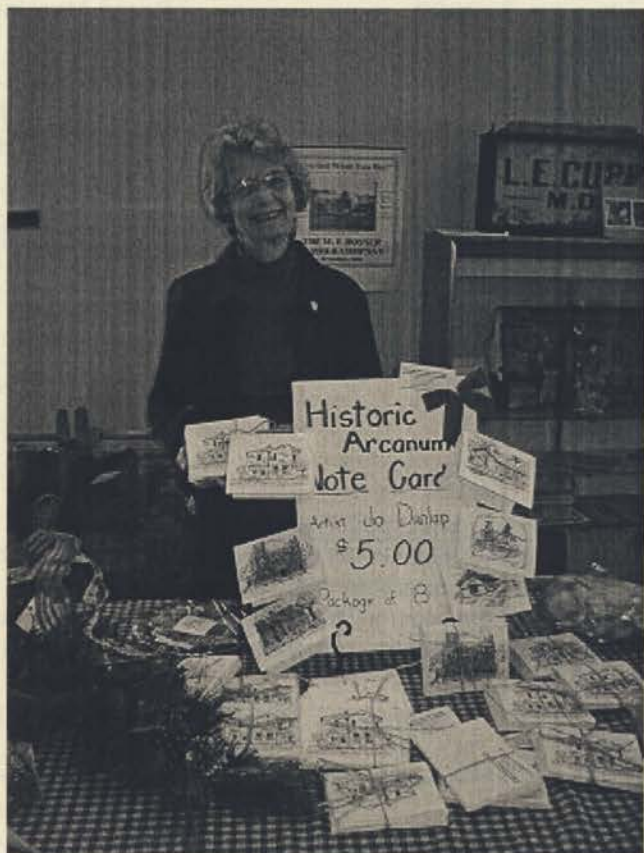 L.E.CUR
M.D.
Historic
Arcanum
Note Card
Artist Jo Dunlap
$5.00
Package of 8